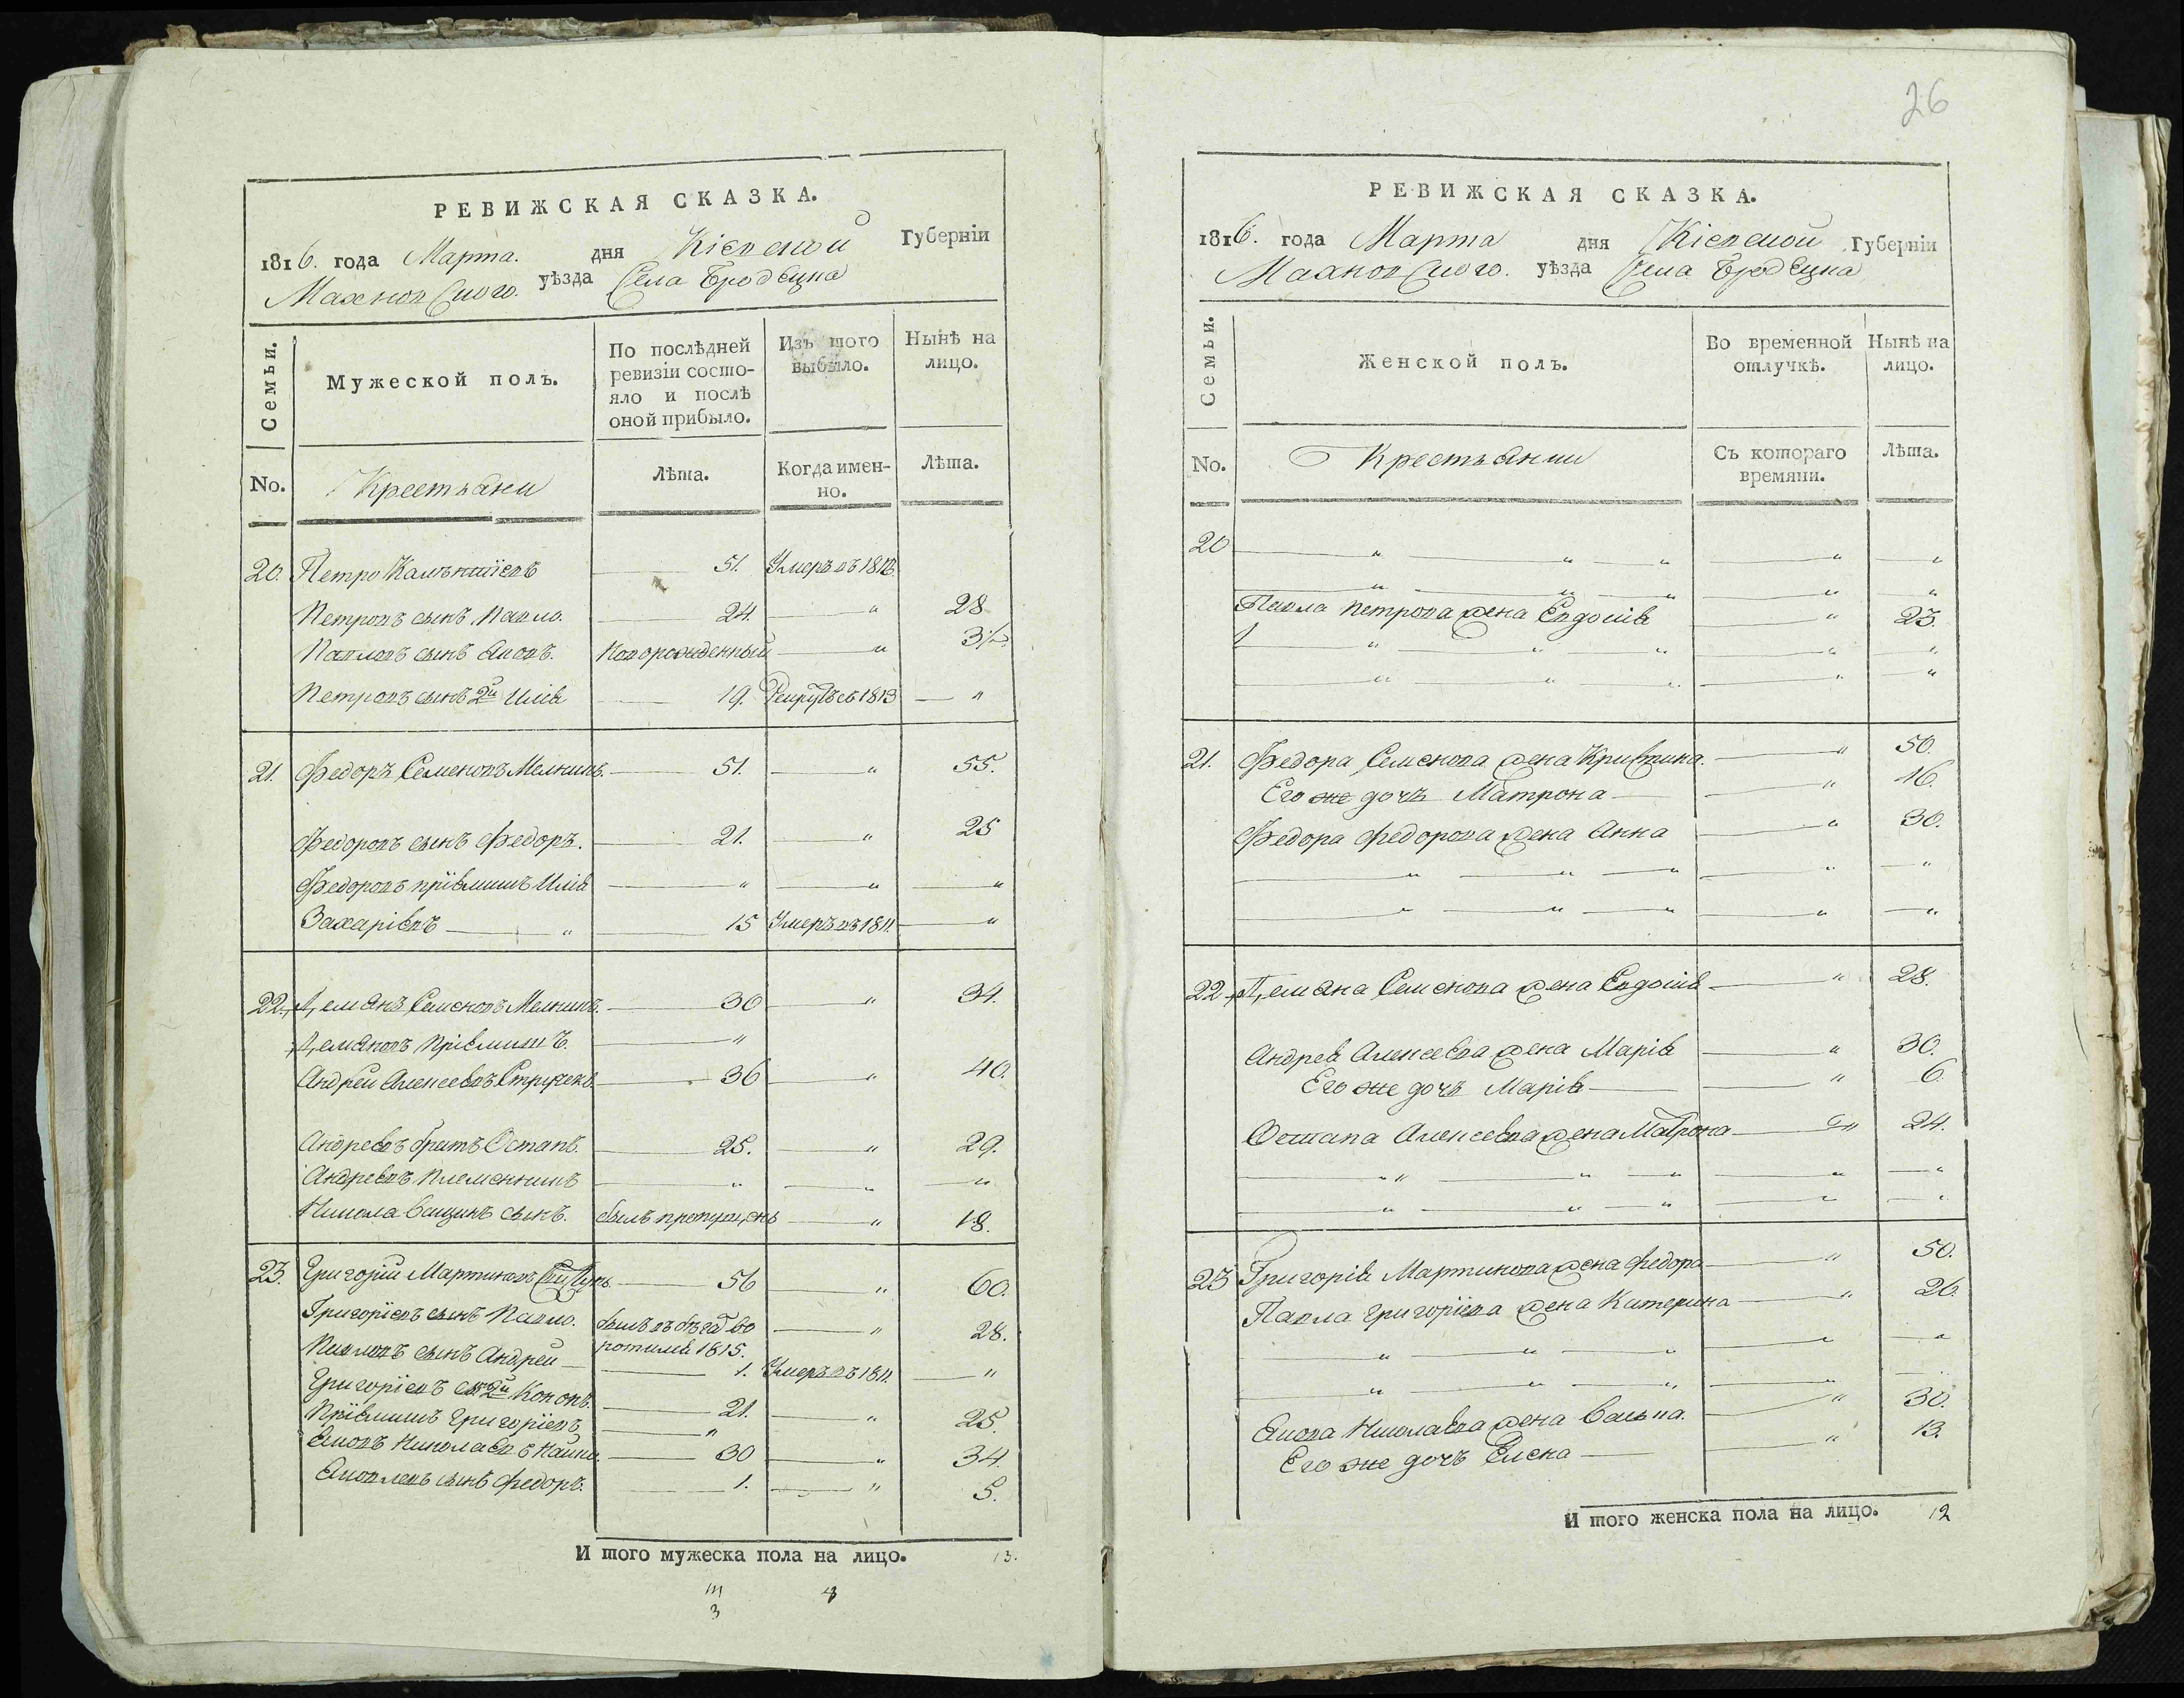 РЕВИЖСКАЯ СКАЗКА.
1816. года Марта. дня Кіевской Губерніи
Махновского. уѣзда Села Бродецка
Семьи.
Мужеской полъ.
По послѣдней ревизіи состояло и послѣ оной прибыло.
Изъ того выбыло.
Нынѣ на лицо.
No.
Крестьяни
Лѣта.
Когда именно.
Лѣта.
20. Петро 51. Умеръ въ 1812
Петровъ сынъ Павло. 24. " 28
Павловъ сынъ Яковъ. Новорожденный " 3½
Петровъ сынъ 2й Илія 19. Рекрутъ съ 1813 "
21. Федоръ Семеновъ Мелникъ. 51. " 55.
Федоровъ сынъ Федоръ. 21. " 25
Федоровъ пріямишъ Илія " " "
Захаріевъ " 15 Умеръ въ 1811. "
22. Демянъ Семеновъ Мелникъ. 30 " 34.
Демяновъ пріямишъ. "
Андрей Алексеевъ 36 " 40.
Андреевъ братъ Остапъ. 25. " 29.
Андреевъ племенникъ " " "
Никола сынъ. былъ пропущенъ " 18.
23. Григорій Мартиновъ 56 " 60.
Григоріевъ сынъ Павло. былъ въ бегах во " 28.
Павловъ сынъ Андрей ротился 1815. 1. Умеръ въ 1811. "
Григоріевъ сынъ 2й Кононъ. 21. " 25.
Пріямишъ Григоріевъ "
Яковъ Николаевъ 30 " 34.
Яковлевъ сынъ Федоръ. 1. " 5.
И того мужеска пола на лицо. 13.
3
26
РЕВИЖСКАЯ СКАЗКА.
1816. года Марта дня Кіевской Губерніи
Махновского. уѣзда Села Бродецка
Семьи.
Женской полъ.
Во временной отлучкѣ.
Нынѣ на лицо.
No.
Крестьянки
Съ котораго времяни.
Лѣта.
20 " " " " "
" " " " "
Павла Петрова жена Евдокія " 23.
" " " " "
" " " " "
21. Федора Семенова жена Кристина. " 50.
Его же дочь Матрона " 16.
Федора Федорова жена Анна " 30.
" " " " "
" " " " "
22. Демяна Семенова жена Евдокія " 28.
Андрея Алексеева жена Марія " 30.
Его же дочь Марія " 6.
Остапа Алексеева жена Матрона " 24.
" " " " "
" " " " "
23 Григорія Мартинова жена Федора " 50.
Павла Григоріева жена Катерина " 26.
" " " " "
" " " " "
Якова Николаева жена " 30.
Его же дочь Елена " 13.
И того женска пола на лицо. 12